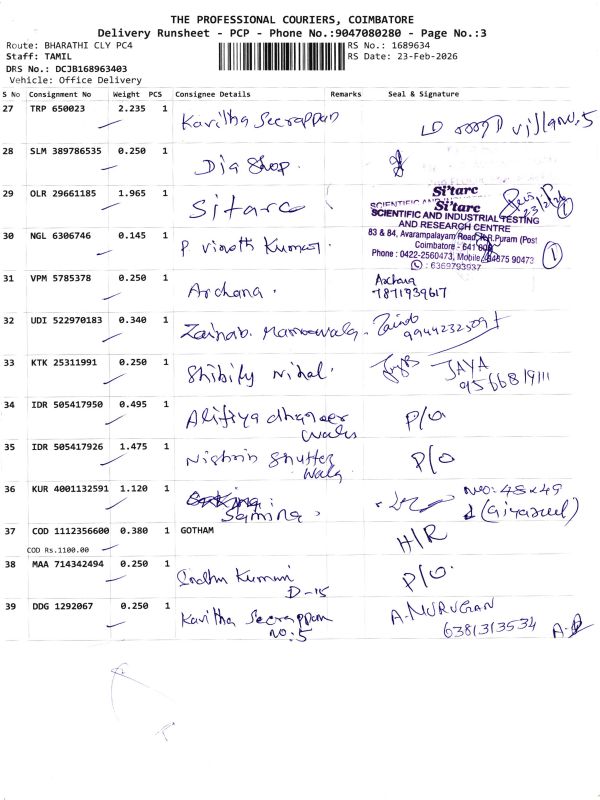 THE PROFESSIONAL COURIERS, COIMBATORE
Delivery Runsheet - PCP - Phone No.:9047080280 - Page No.:3
Route: BHARATHI CLY PC4
RS No.: 1689634
Staff: TAMIL
RS Date: 23-Feb-2026
DRS No.: DCJB168963403
Vehicle: Office Delivery
S No Consignment No Weight PCS Consignee Details Remarks Seal & Signature
27 TRP 650023 2.235 1 Kavitha Seerappan villa no. 5
28 SLM 389786535 0.250 1 Dia Shop.
29 OLR 29661185 1.965 1 Sitarc
Si'tarc
Si'tarc
SCIENTIFIC AND INDUSTRIAL TESTING
AND RESEARCH CENTRE
83 & 84, Avarampalayam Road, K.R.Puram (Post
Coimbatore - 641
Phone : 0422-2560473, Mobile 94875 90473
: 6369793937
1
1
30 NGL 6306746 0.145 1 P Vinoth Kumar.
31 VPM 5785378 0.250 1 Archana. Archana
7871939617
32 UDI 522970183 0.340 1 Zainab. Zainab
33 KTK 25311991 0.250 1 Shibily Nihal. JAYA
9566819111
34 IDR 505417950 0.495 1 Alifiya P/O
35 IDR 505417926 1.475 1 Nishrin Shutter P/O
wala
36 KUR 4001132591 1.120 1 Samina. No: 48x49
37 COD 1112356600 0.380 1 GOTHAM H/R
COD Rs.1100.00
38 MAA 714342494 0.250 1 Sindhu Kumari P/O.
D-15
39 DDG 1292067 0.250 1 Kavitha Seerappan A. MURUGAN
no: 5 6381313534